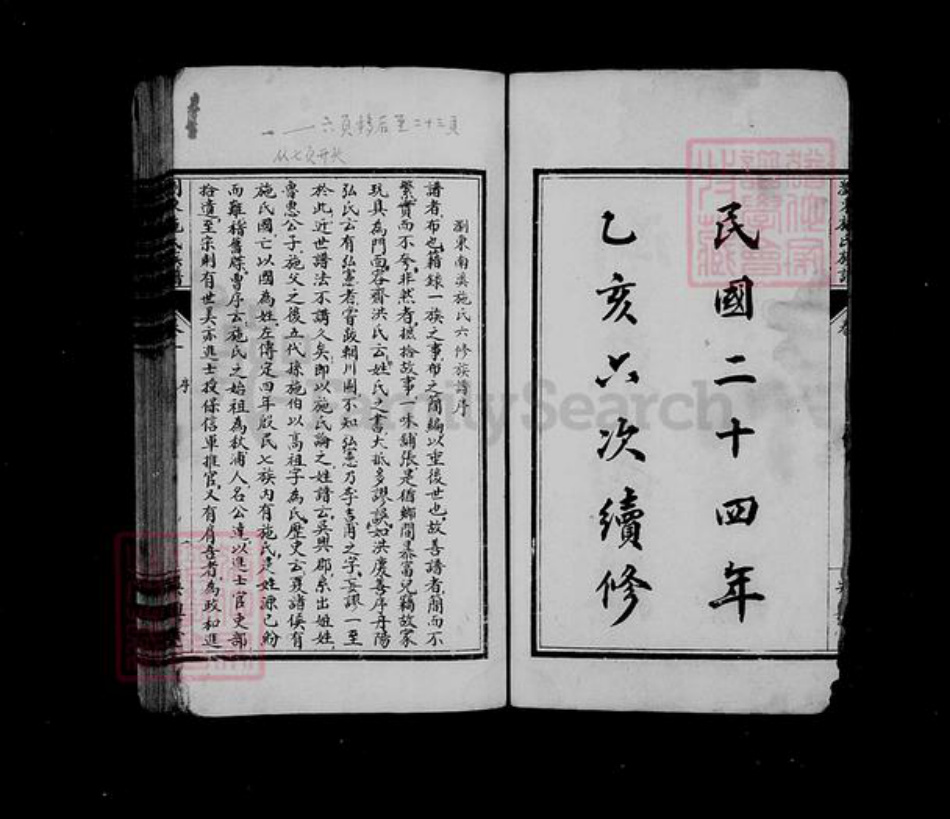 民國二十四年
乙亥六次續修
瀏東南溪施氏六修族譜序
譜者布也籍錄一族之事布之簡編以垂後世也故善譜者簡而不
繁實而不夸非然者摭拾故事一味鋪張是猶鄉間暴富兒竊故家
玩具為門面容齋洪氏云姓氏之書大抵多謬誤如洪慶善序丹陽
弘氏云有弘憲者嘗跋輞川圖不知弘憲乃李吉甫之字妄謬一至
於此近世譜法不講久矣即以施氏論之姓譜云吳興郡系出姬姓
魯惠公子施父之後五代孫施伯以高祖字為氏歷史云夏諸侯有
施氏國亡以國為姓左傳定四年殷民七族內有施氏是姓源已紛
而難稽舊牒曹序云施氏之始祖為秋浦人名公達以進士官吏部
拾遺至宗則有世美亦進士授保信軍推官又有有吾者為政和進
序
六頁移后至二十三頁
从七頁開始
FamilySearch